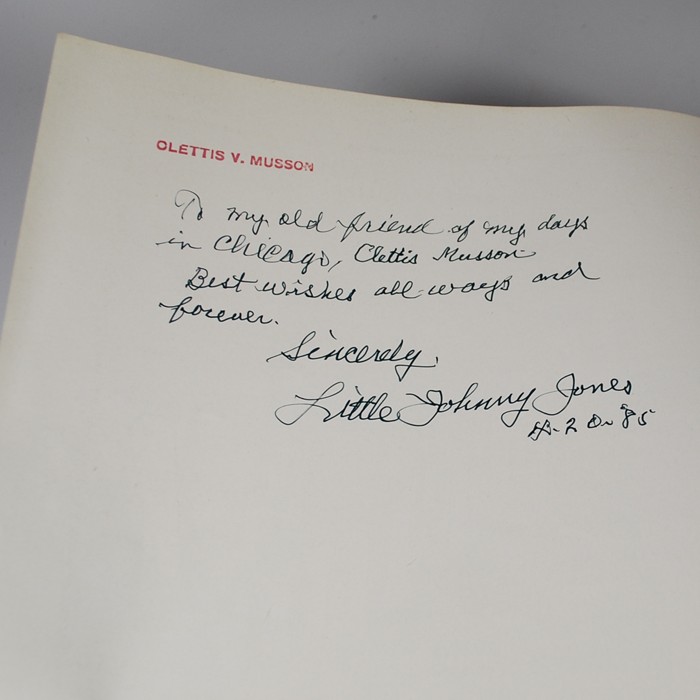 CLETTIS V. MUSSON
To my old friend of my days
in Chicago, Clettis Musson
Best wishes all ways and
forever.
Sincerely.
Little Johnny Jones
4-20-85